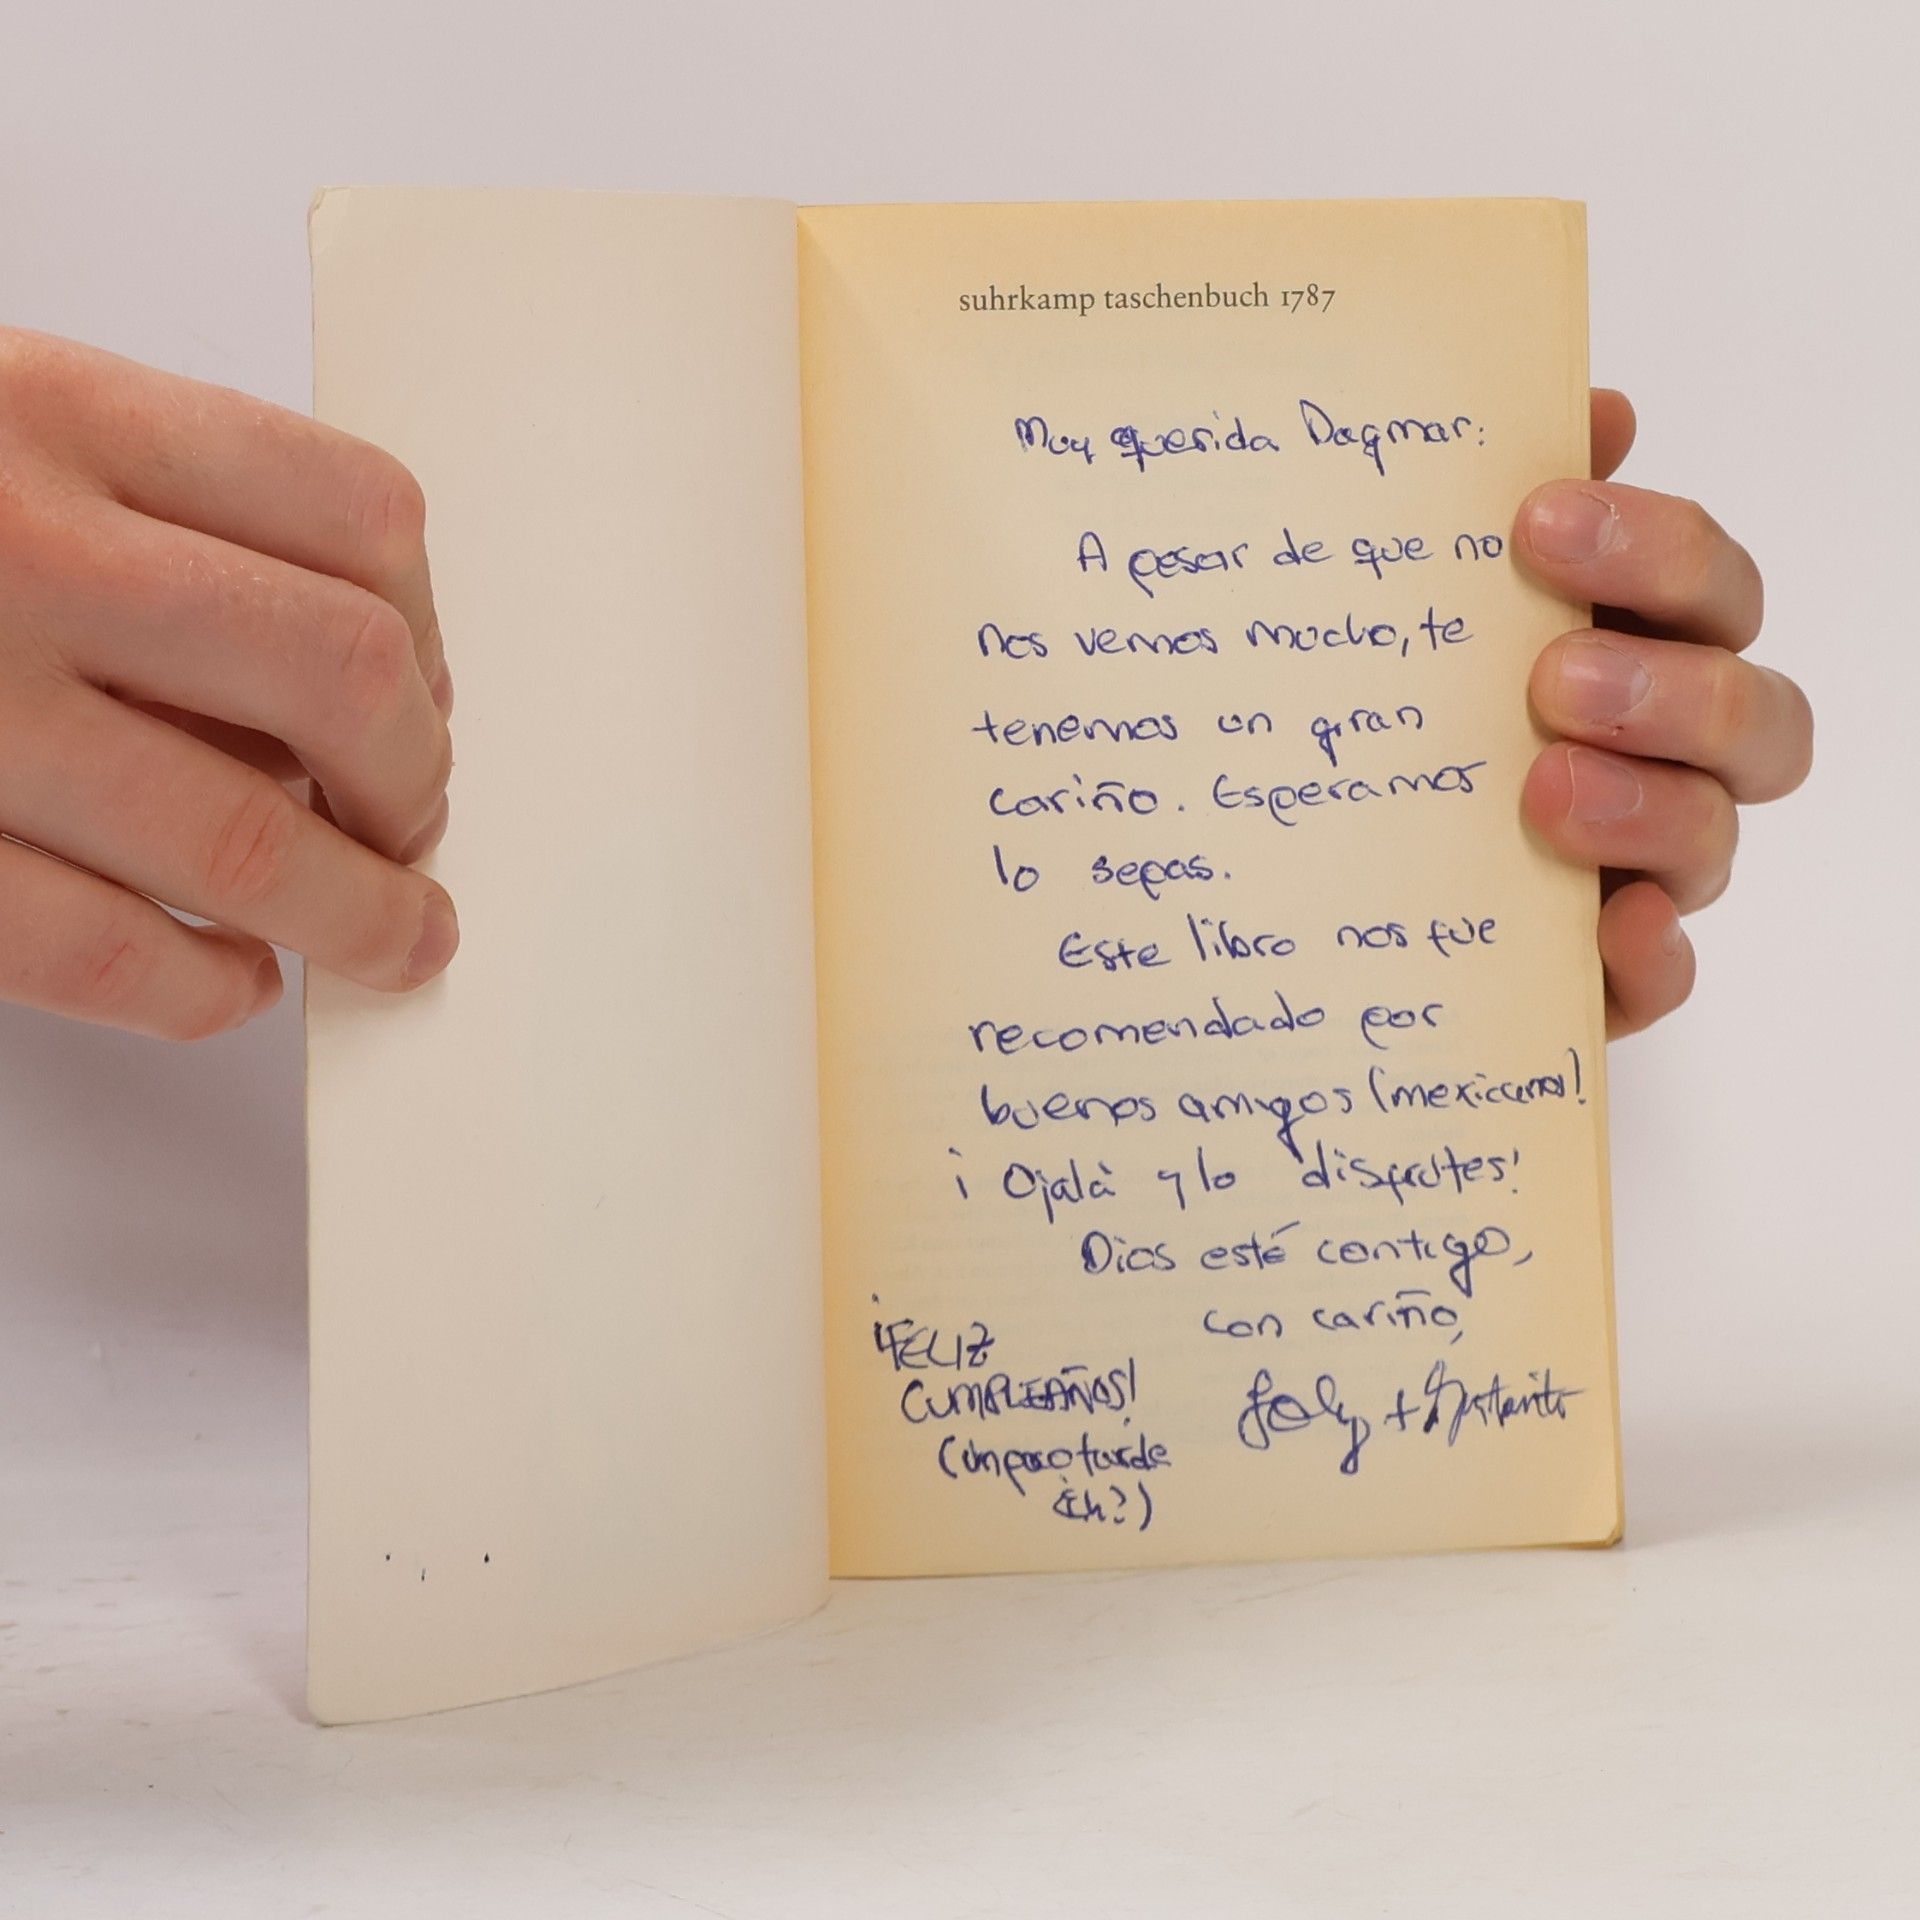 suhrkamp taschenbuch 1787
Muy querida Dagmar:
A pesar de que no
nos vemos mucho, te
tenemos un gran
cariño. Esperamos
lo sepas.
Este libro nos fue
recomendado por
buenos amigos (mexicanos)!
¡Ojalà y lo disfrutes!
Dios esté contigo,
con cariño,
¡FELIZ
CUMPLEAÑOS!
(un poco tarde
eh?)